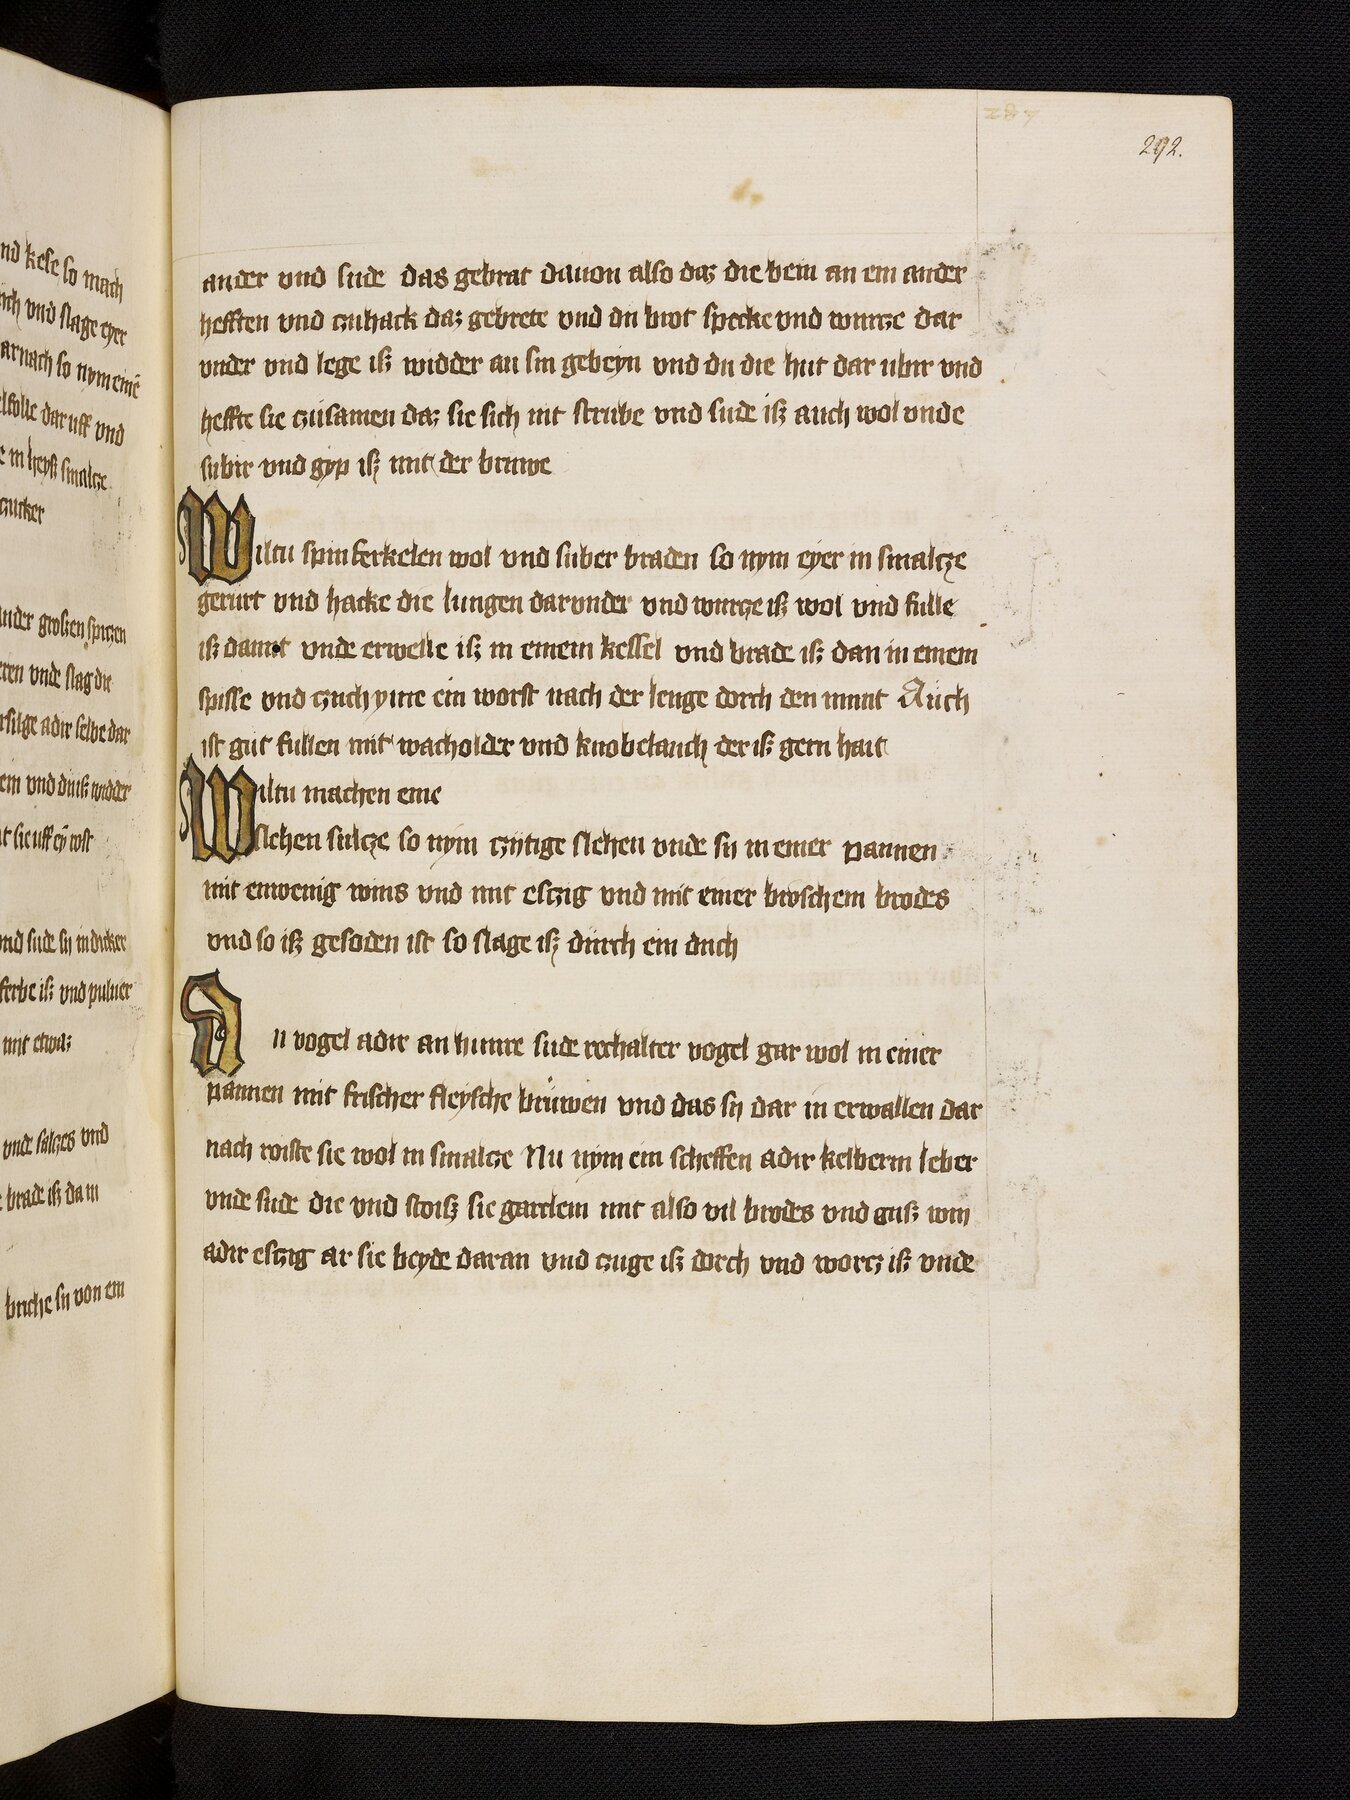 nd kese so mach
ich vnd slage eyer
arnach so nym eine
lfolle dar uff vnd
e in heyß smalcze
czucker
ander großen spiczen
eren vnde slag die
ersilge adir selbe dar
ein vnd diuß widder
t sie uff ey rost
vnd sude sij in dicker
ferbe iß vnd puluer
mit etwaz
vnde salczes vnd
brade iß da in
briche sij von em
287
292.
ander vnd sude das gebrat dauon also daz die bein an ein ander
hefften vnd czuhack daz gebrete vnd du brot specke vnd wurcze dar
vnder vnd lege iß widder an sin gebeyn vnd du die hut dar ubir vnd
heffte sie czusamen daz sie sich nit strube vnd sude iß auch wol vnde
subir vnd gyp iß mit der bruwe
Wiltu spinferkelen wol vnd suber braden so nym eyer in smalcze
gerurt vnd hacke die lungen darvnder vnd wurcze iß wol vnd fulle
iß damit vnde erwelle iß in einem kessel vnd brade iß dan in einem
spisse vnd czuch yme ein worst nach der lenge dorch den munt Auch
ist gut fullen mit wacholder vnd knobelauch der iß gern hait
Wiltu machen eine
slehen sulcze so nym czytige slehen vnde sij in einer pannen
mit einwenig wins vnd mit eßzig vnd mit einer broschem brodes
vnd so iß gesoden ist so slage iß durch ein duch
An vogel adir an hunre sude rechalter vogel gar wol in einer
pannen mit frischer fleysche bruwen vnd das sij dar in erwallen dar
nach roiste sie wol in smalcze Nu nym ein scheffen adir kelberin leber
vnde sude die vnd stoiß sie garclein mit also vil brodes vnd guß win
adir eßzig ar sie beyde daran vnd czuge iß dorch vnd worcz iß vnde